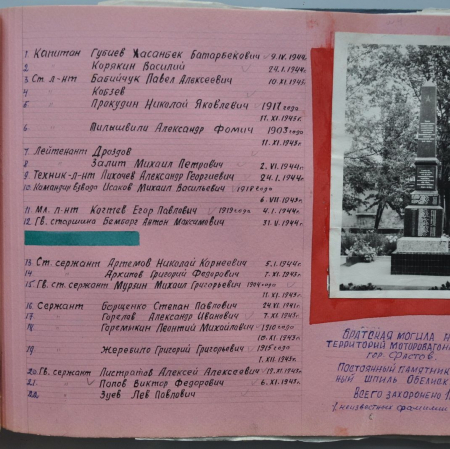 1. Капитан Губиев Хасанбек Батарбекович ✓ 9.IV.1944г.
2. " Корякин Василий 24.1.1944г.
3. Ст. л-нт Бабийчук Павел Алексеевич 10.XI.1943г.
4 " Кобзев
5 " Прокудин Николай Яковлевич 1911 года
11.XI.1943г.
6 " Пилшивили Александр Фомич 1903 года
11.XI.1943г.
7 Лейтенант Дроздов
8 " Залит Михаил Петрович 2.VI.1944г.
9. Техник-л-нт Лихочев Александр Георгиевич 24.1.1944г.
10. Командир взвода Исаков Михаил Васильевич 1918 года
6.VII.1943г.
11. Мл. л-нт Коггтев Егор Павлович 1919 года 4.1.1944г.
12. Гв. старшина Бомборг Антон Максимович 31.V.1944г.
13. Ст. сержант Артемов Николай Корнеевич 5.1.1944г.
14 " Архипов Григорий Федорович 7.XI.1943г.
15. Гв. ст. сержант Мурзин Михаил Григорьевич 1904 года
11.XI.1943г.
16 Сержант Борщенко Степан Павлович 24.XI.1941г.
17 " Горелов Александр Иванович 7.XI.1943г.
18 " Горемыкин Леонтий Михайлович 1910 года
10.XI.1943г.
19. " Жеребило Григорий Григорьевич 1915 года
1.XII.1943г.
20. Гв. сержант Листратов Алексей Алексеевич 13.XI.1943г.
21. " Попов Виктор Федорович 6.XI.1943г.
22. " Зуев Лев Павлович
Братская могила н
территории моторовагон
гор. Фастов.
Постоянный памятник
ный шпиль обелиск
Всего захоронено
неизвестны фамилии